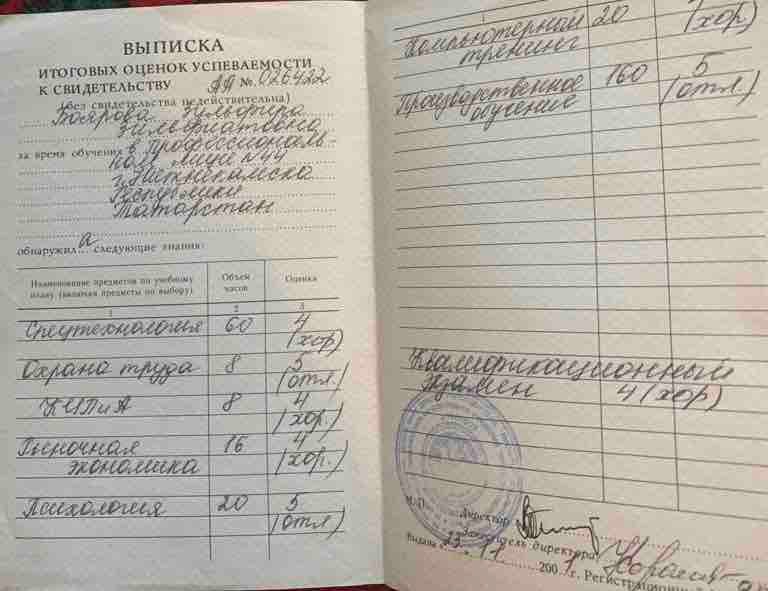 ВЫПИСКА
ИТОГОВЫХ ОЦЕНОК УСПЕВАЕМОСТИ
К СВИДЕТЕЛЬСТВУ АА № 026422
(без свидетельства недействительна)
Боярова Зульфира
Зульфатовна
за время обучения в Профессиональ-
ном лицее №44
г. Нижнекамска
Республики
Татарстан
обнаружила следующие знания:
Наименование предметов по учебному плану (включая предметы по выбору) Объем часов Оценка
1 2 3
Спецтехнология 60 4 (хор)
Охрана труда 8 5 (отл.)
КИПиА 8 4 (хор.)
Рыночная экономика 16 4 (хор.)
Психология 20 5 (отл)
Компьютерный тренинг 20 (хор)
Производственное обучение 160 5 (отл.)
Квалификационный
экзамен 4 (хор)
М.П. Директор
Заместитель директора
Выдана 23. 11 2001 г. Регистрационный